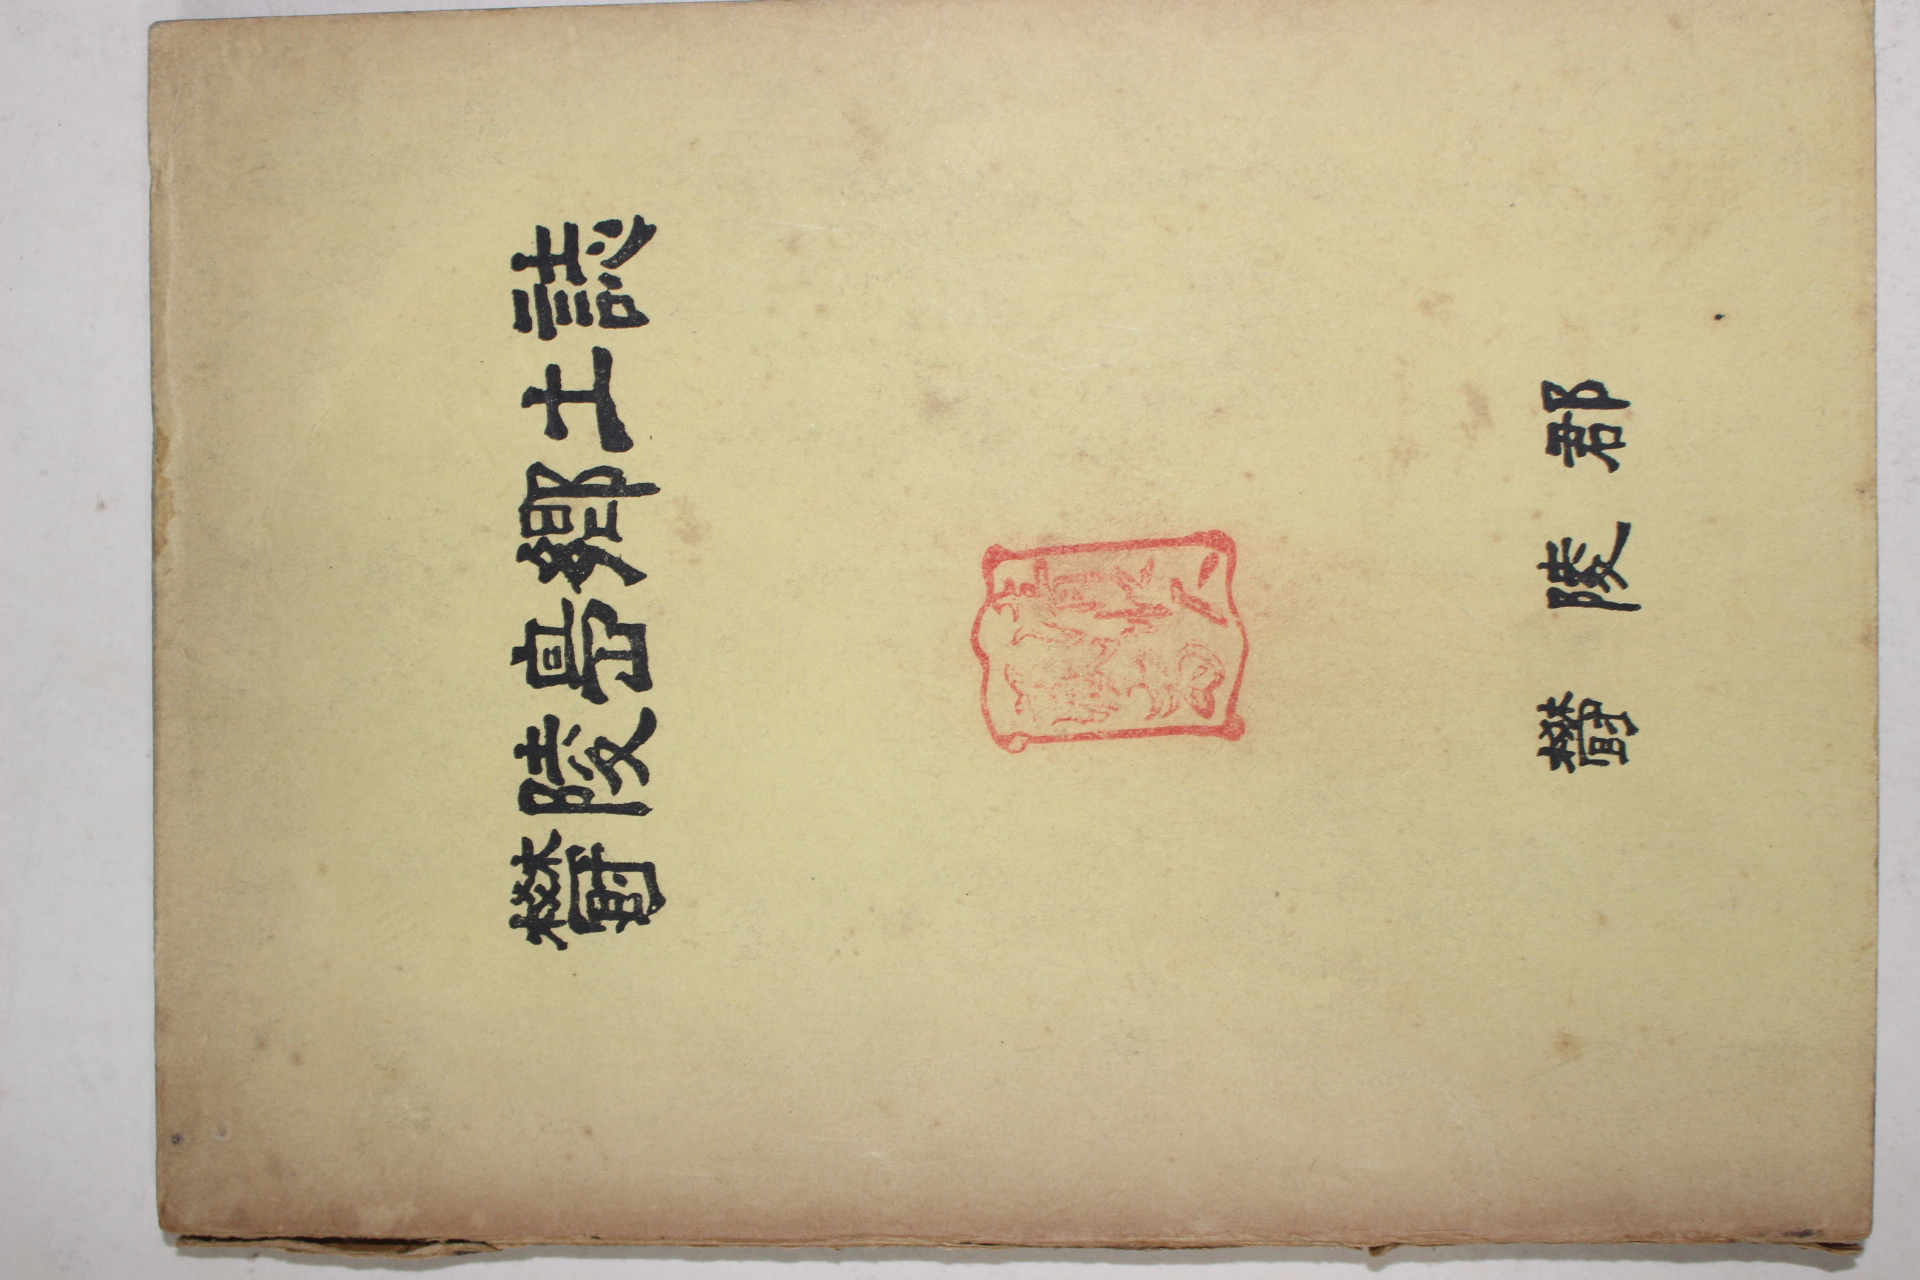 鬱陵島鄕土誌
鬱陵郡